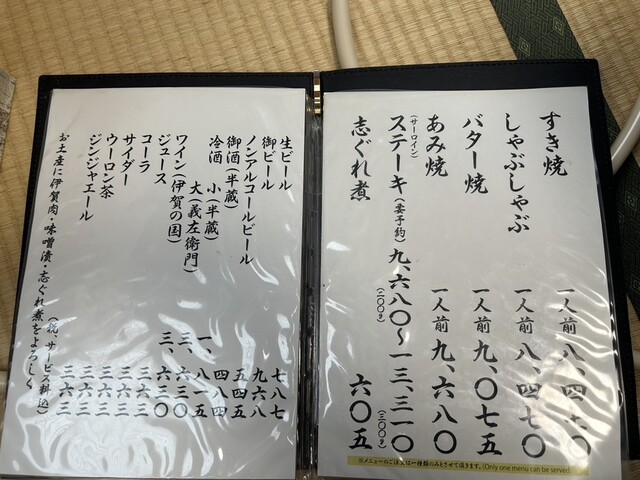 すき焼 一人前 八、四七〇
しゃぶしゃぶ 一人前 八、四七〇
バター焼 一人前 九、〇七五
あみ焼 一人前 九、六八〇
(サーロイン)
ステーキ(要予約) 九、六八〇〜一三、三一〇
(二〇〇g) (三〇〇g)
志ぐれ煮 六〇五
※メニューのご注文は一種類のみとさせて頂きます。(Only one menu can be served)
生ビール 七八七
御ビール 九六八
ノンアルコールビール 五四五
御酒(半蔵) 四八四
冷酒 小(半蔵) 一、八一五
大(義左衛門) 三、六三〇
ワイン(伊賀の国) 三、六三〇
ジュース 三六三
コーラ 三六三
サイダー 三六三
ウーロン茶 三六三
ジンジャエール 三六三
(税、サービス料込)
お土産に伊賀肉・味噌漬・志ぐれ煮をよろしく